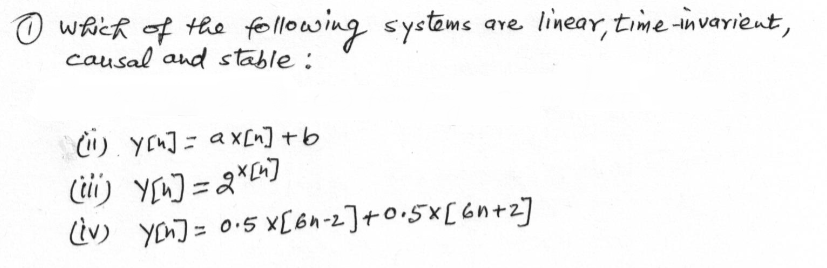 ① which of the following systems are linear, time-invarient,
causal and stable :
(ii) y[n] = ax[n] + b
(iii) y[n] = 2^x[n]
(iv) y[n] = 0.5 x[6n-2] + 0.5x[6n+2]